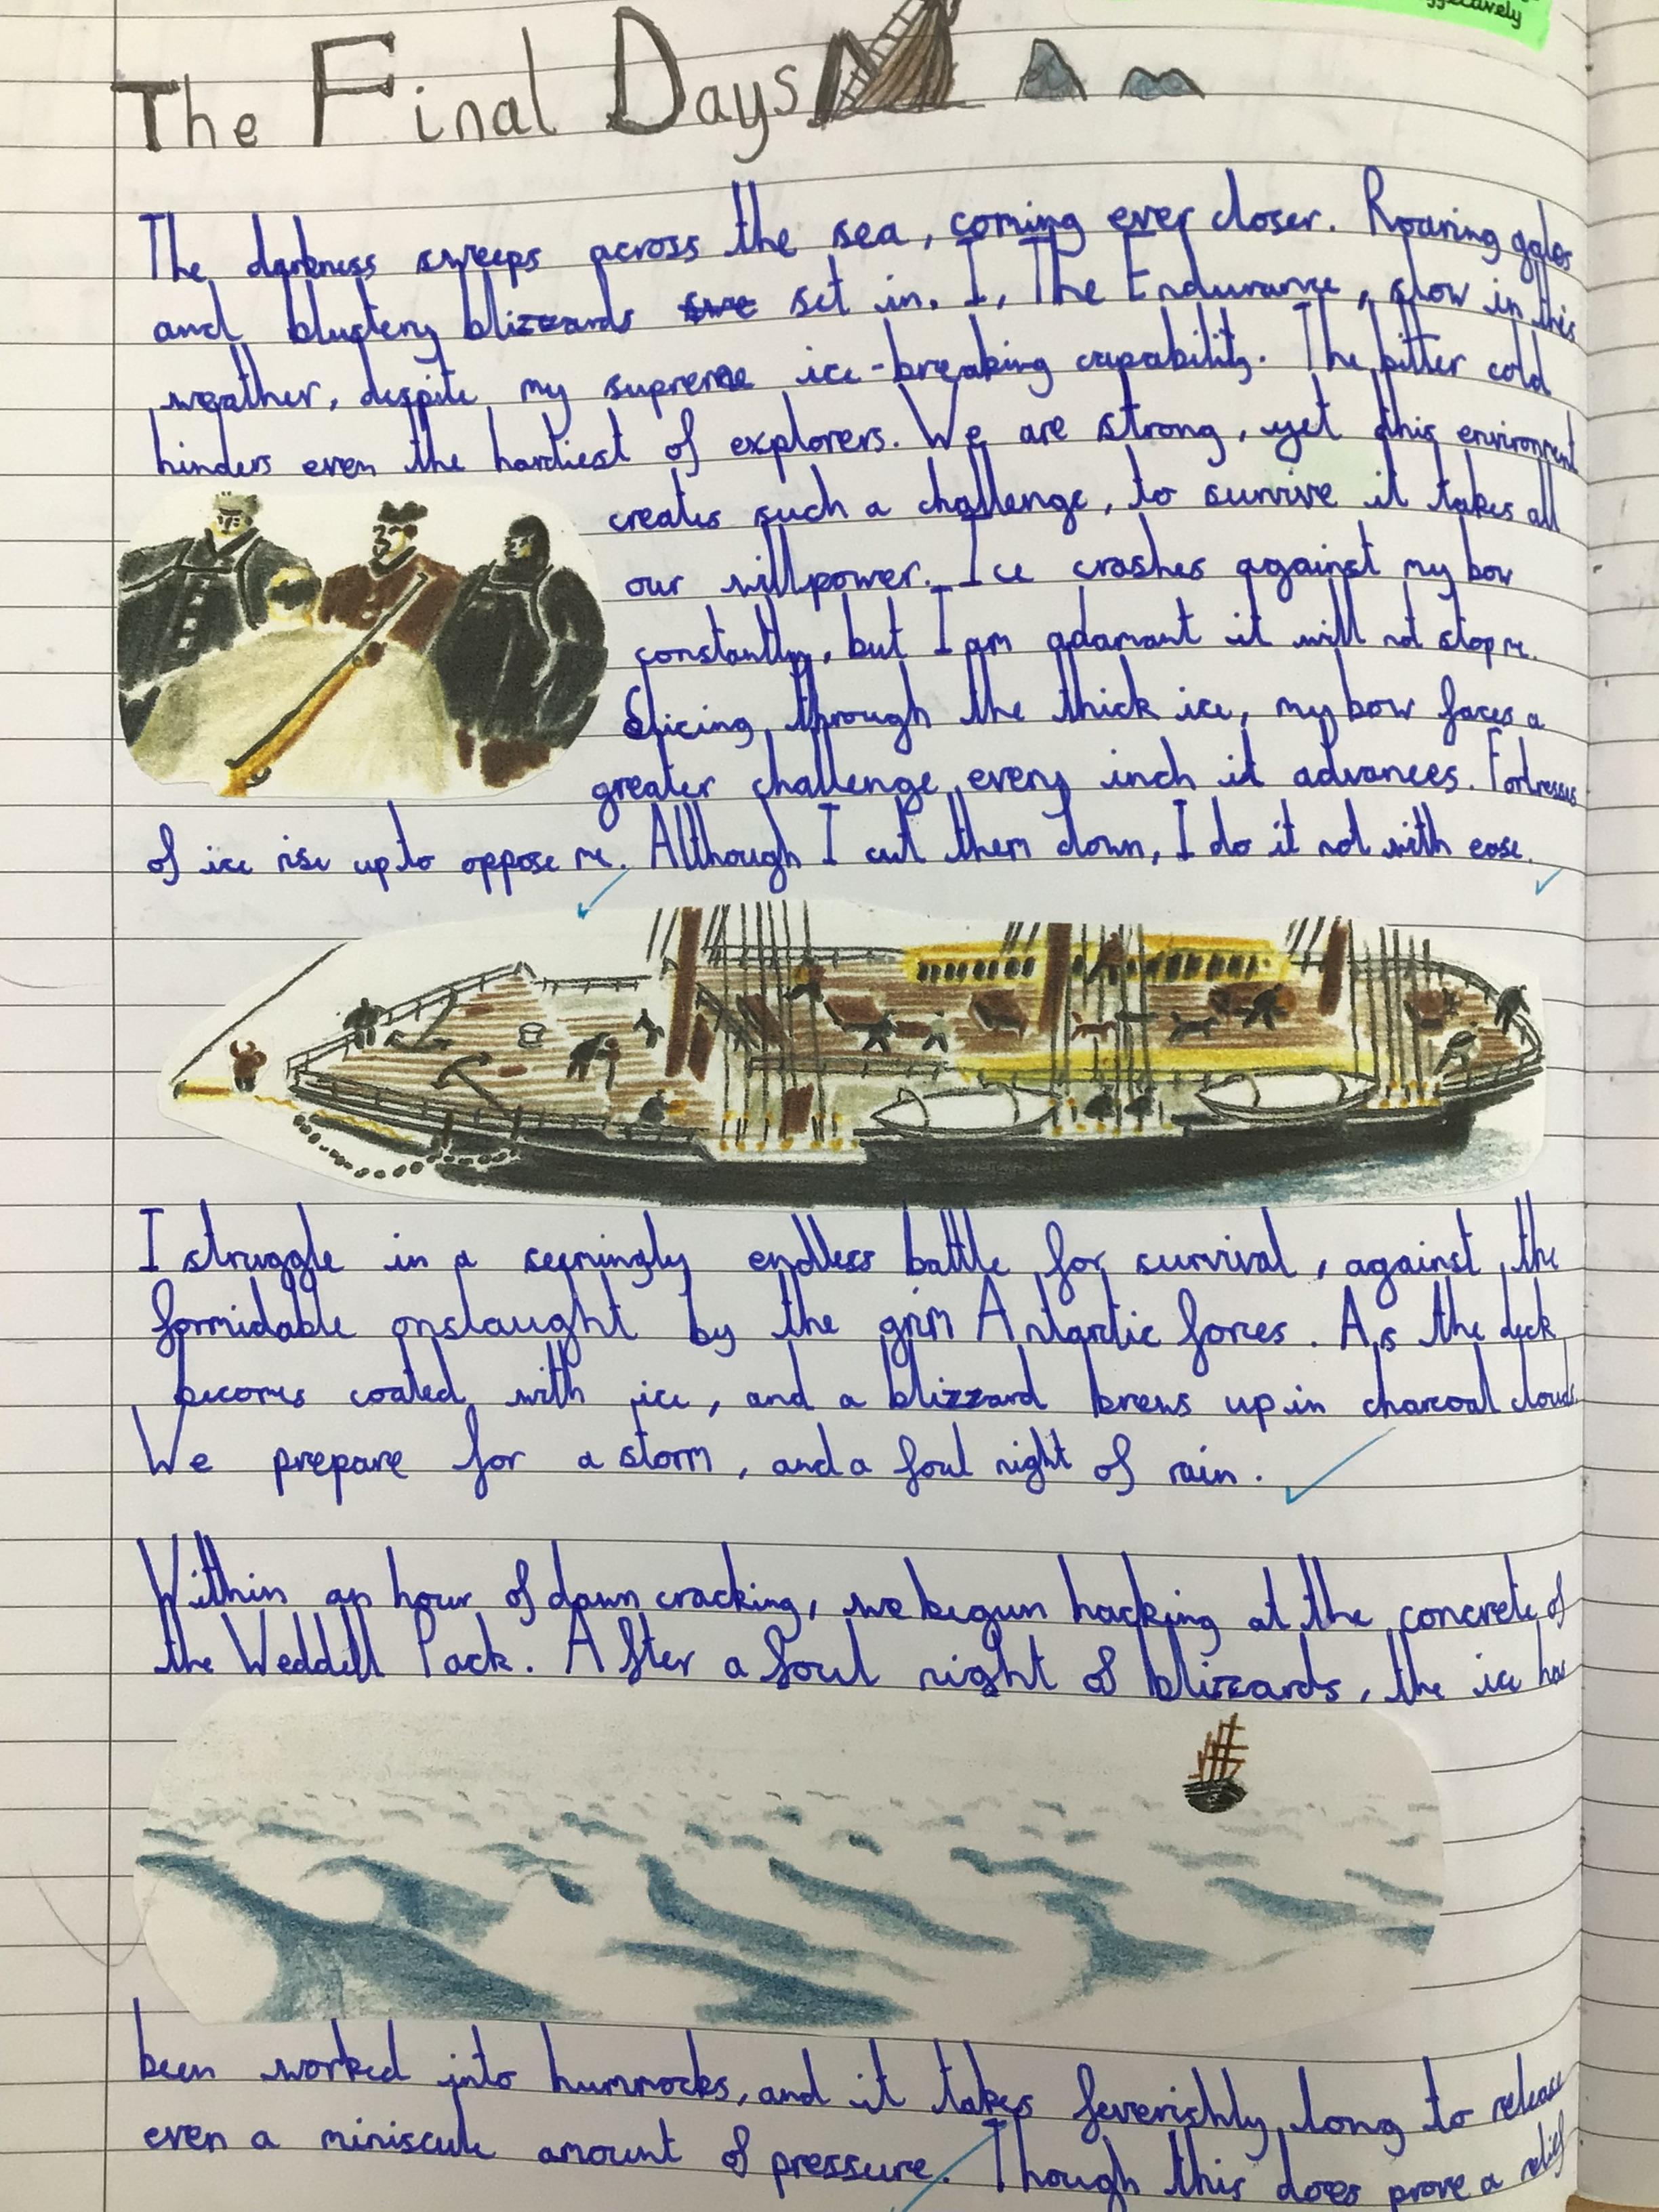 effectively
The Final Days
The darkness sweeps across the sea, coming ever closer. Roaring gales
and blustery blizzards set in. I, The Endurance, slow in this
weather, despite my supreme ice-breaking capability. The bitter cold
hinders even the hardiest of explorers. We are strong, yet this environment
creates such a challenge, to survive it takes all
our willpower. Ice crashes against my bow
constantly, but I am adamant it will not stop me.
Slicing through the thick ice, my bow faces a
greater challenge every inch it advances. Fortresses
of ice rise up to oppose me. Although I cut them down, I do it not with ease.
I struggle in a seemingly endless battle for survival, against the
formidable onslaught by the grim Antartic forces. As the deck
becomes coated with ice, and a blizzard brews up in charcoal clouds.
We prepare for a storm, and a foul night of rain.
Within an hour of dawn cracking, we begun hacking at the concrete of
the Weddell Pack. After a foul night of blizzards, the ice has
been worked into hummocks, and it takes feverishly long to release
even a miniscule amount of pressure. Though this does prove a relief